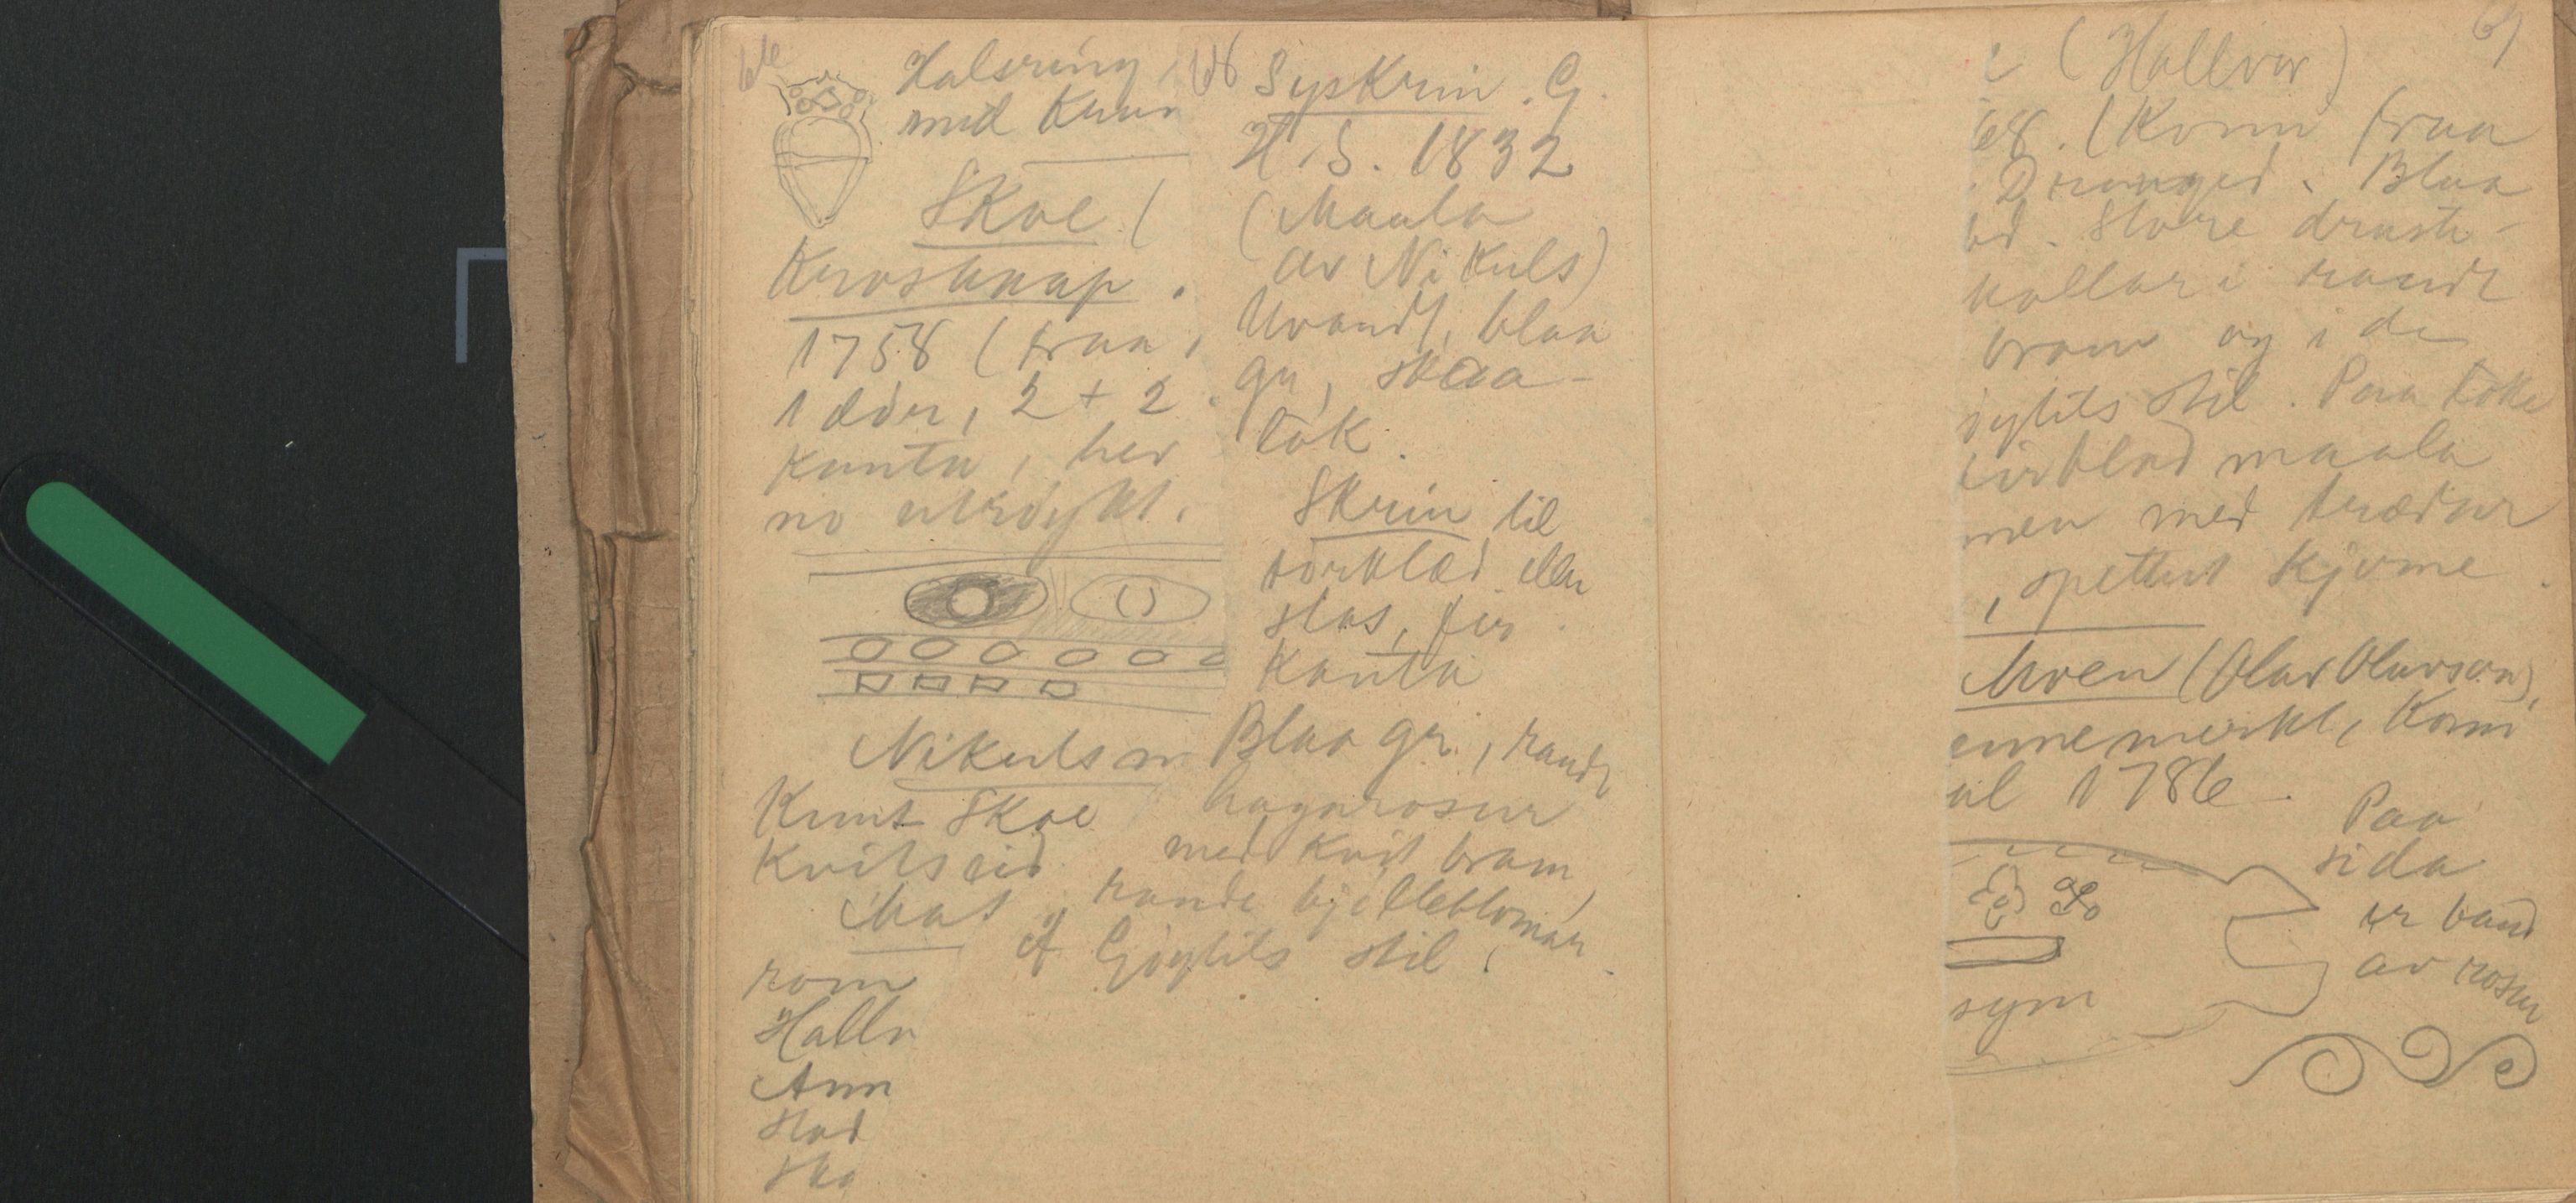 66
Halsring
med Krun
Skoe (
Krosskaap.
1758 (fraa
1 dör, 2 + 2
Kanta, her
no utröykt.
Nikuls
Knut Skoe
Kvitseid
Mat
rom
Hallv
Ann
Stad
Sko
68 Syskrin. G.
H. S. 1832
(Maala
av Nikuls)
Uvandt, blaa
gr, skaa-
lok.
Skrin til
törklæd eller
stas, fir
Kanta
Blaa gr., raude
hagarosur
med kvit bram,
raude bjelleblomar
Göytils stil.
i (Hallvor)
68. (Kom fraa
Drangeid. Blaa
bd. Store druste-
kollar i raudt
bram og i de
öytils stil. Paa loke
törklæd maala
men med trædur
, spettut Kjorne
Moen (Olav Olavson),
ennemerkt, Kom
til 1786
Paa
sida
er band
av rosur
sym
69